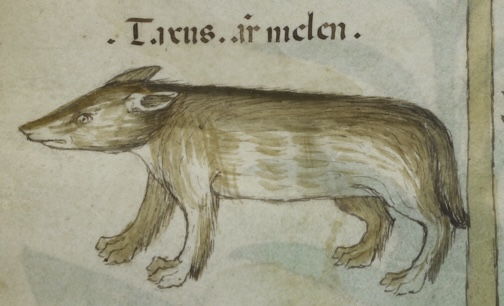 . Taxus. .ar̄ melen .